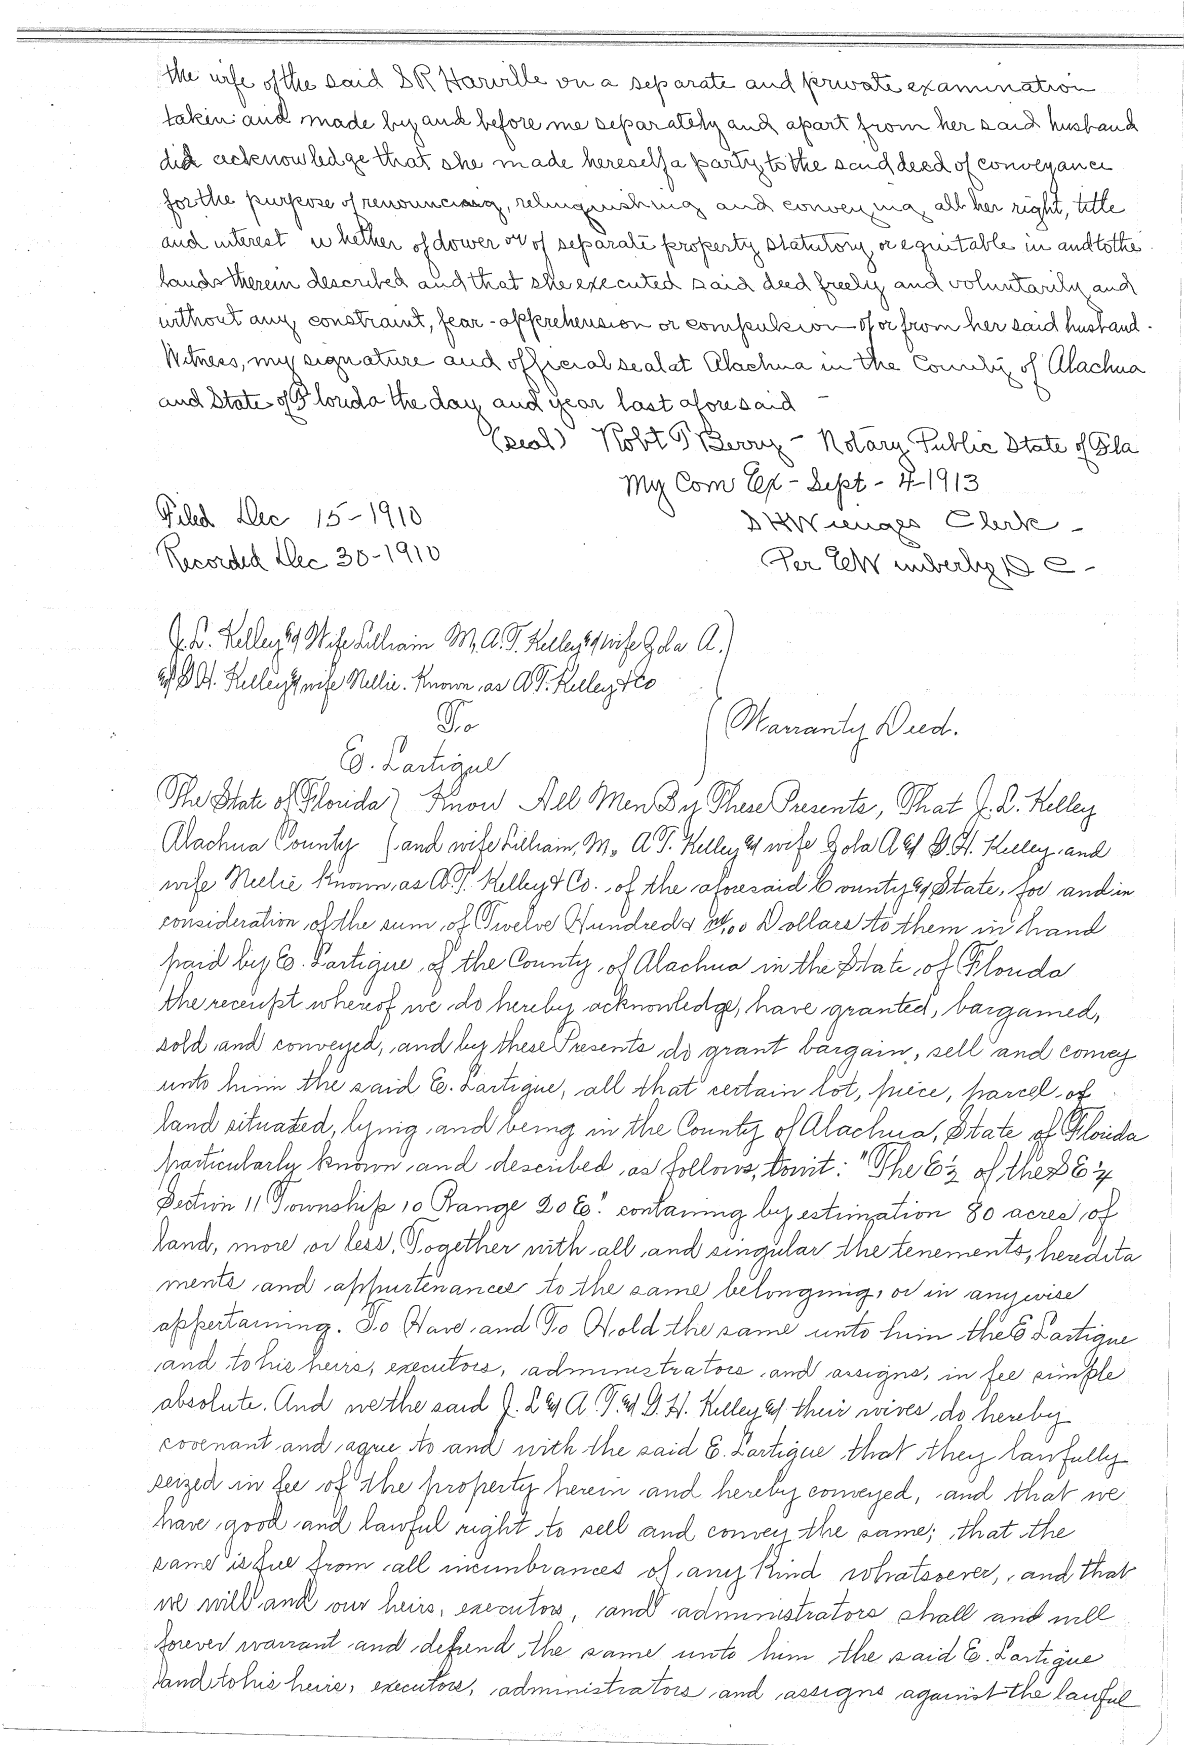 the wife of the said S R Harville on a separate and private examination
taken and made by and before me separately and apart from her said husband
did acknowledge that she made hereself a party to the said deed of conveyance
for the purpose of renouncing, relinquishing and conveying all her right, title
and interest whether of dower or of separate property statutory or equitable in and to the
lands therein described and that she executed said deed freely and voluntarily and
without any constraint, fear - apprehension or compulsion of or from her said husband.
Witness, my signature and official seal at Alachua in the County of Alachua
and State of Florida the day and year last aforesaid -
(seal) Robt T Berry - Notary Public State of Fla
My Com Ex - Sept - 4 - 1913
Filed Dec 15 - 1910
S H Wienges Clerk -
Recorded Dec 30 - 1910
Per E W imberly D C -
J. L. Kelley & Wife Lilliain M, A. T. Kelley & wife Zola A.)
& D H. Kelley & wife Nellie. Known as A T. Kelley & Co
To
Warranty Deed.
E. Lartigue
The State of Florida ) Know All Men By These Presents, That J. L. Kelley
Alachua County ( and wife Lilliain, M. A T. Kelley & wife Zola A & D. H. Kelley and
wife Nellie Known as A. T. Kelley & Co. of the aforesaid County & State, for and in
consideration of the sum of Twelve Hundred & no/00 Dollars to them in hand
paid by E. Lartigue of the County of Alachua in the State of Florida
the receipt whereof we do hereby acknowledge, have granted, bargained,
sold and conveyed, and by these Presents do grant bargain, sell and convey
unto him the said E. Lartigue, all that certain lot, piece, parcel of
land situated, lying and being in the County of Alachua, State of Florida
particularly known and described as follows, towit: "The E ½ of the S E ¼
Section 11 Township 10 Range 20 E." containing by estimation 80 acres of
land, more or less. Together with all and singular the tenements, heredita
ments and appurtenances to the same belonging, or in anywise
appertaining. To Have and To Hold the same unto him the E Lartigue
and to his heirs, executors, administrators and assigns, in fee simple
absolute. And we the said J. L & A. T. & D. H. Kelley & their wives do hereby
covenant and agree to and with the said E. Lartigue that they lawfully
seized in fee of the property herein and hereby conveyed, and that we
have good and lawful right to sell and convey the same; that the
same is free from all incumbrances of any kind whatsoever, and that
we will and our heirs, executors, and administrators shall and will
forever warrant and defend the same unto him the said E. Lartigue
and to his heirs, executors, administrators and assigns against the lawful